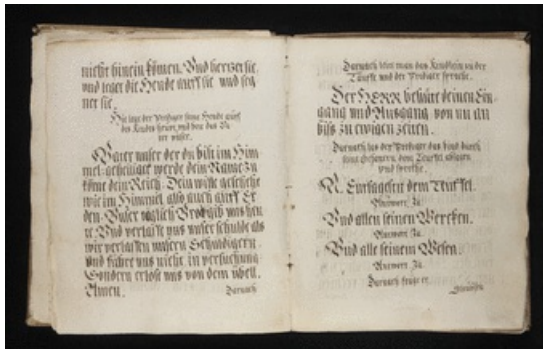 nicht hinein komen. Vnd hertzet sie,
vnd leget die Hende auff sie vnd seg
net sie.
Hie lege der Prediger seine Hende auffs
des Kindes heupt, vnd bete das Va
ter vnser.
Vater vnser der du bist im Him-
mel, geheiliget werde dein Name, Zu
kome dein Reich, Dein wille geschehe
wie im Himmel also auch auff Er
den. Vnser teglich Brod gib vns heu
te. Vnd verlasse vns vnser schulde als
wir verlassen vnsern Schuldigern.
Vnd fuhre vns nicht in versuchung
Sondern erlose vns von dem vbell.
Amen. Darnach
Darnach leite man das Kindlein zu der
Tauffe vnd der Prediger spreche.
Der HERR behute deinen Ein-
gang vnd Ausgang von nu an
biss zu ewigen zeiten.
Darnach las der Prediger das kind durch
seine dem Teuffel absagen
vnd spreche.
N. Entsagestu dem Teuffel.
Antwort Ja.
Vnd allen seinen Wercken.
Antwort Ja.
Vnd alle seinem Wesen.
Antwort Ja.
Darnach frage er.